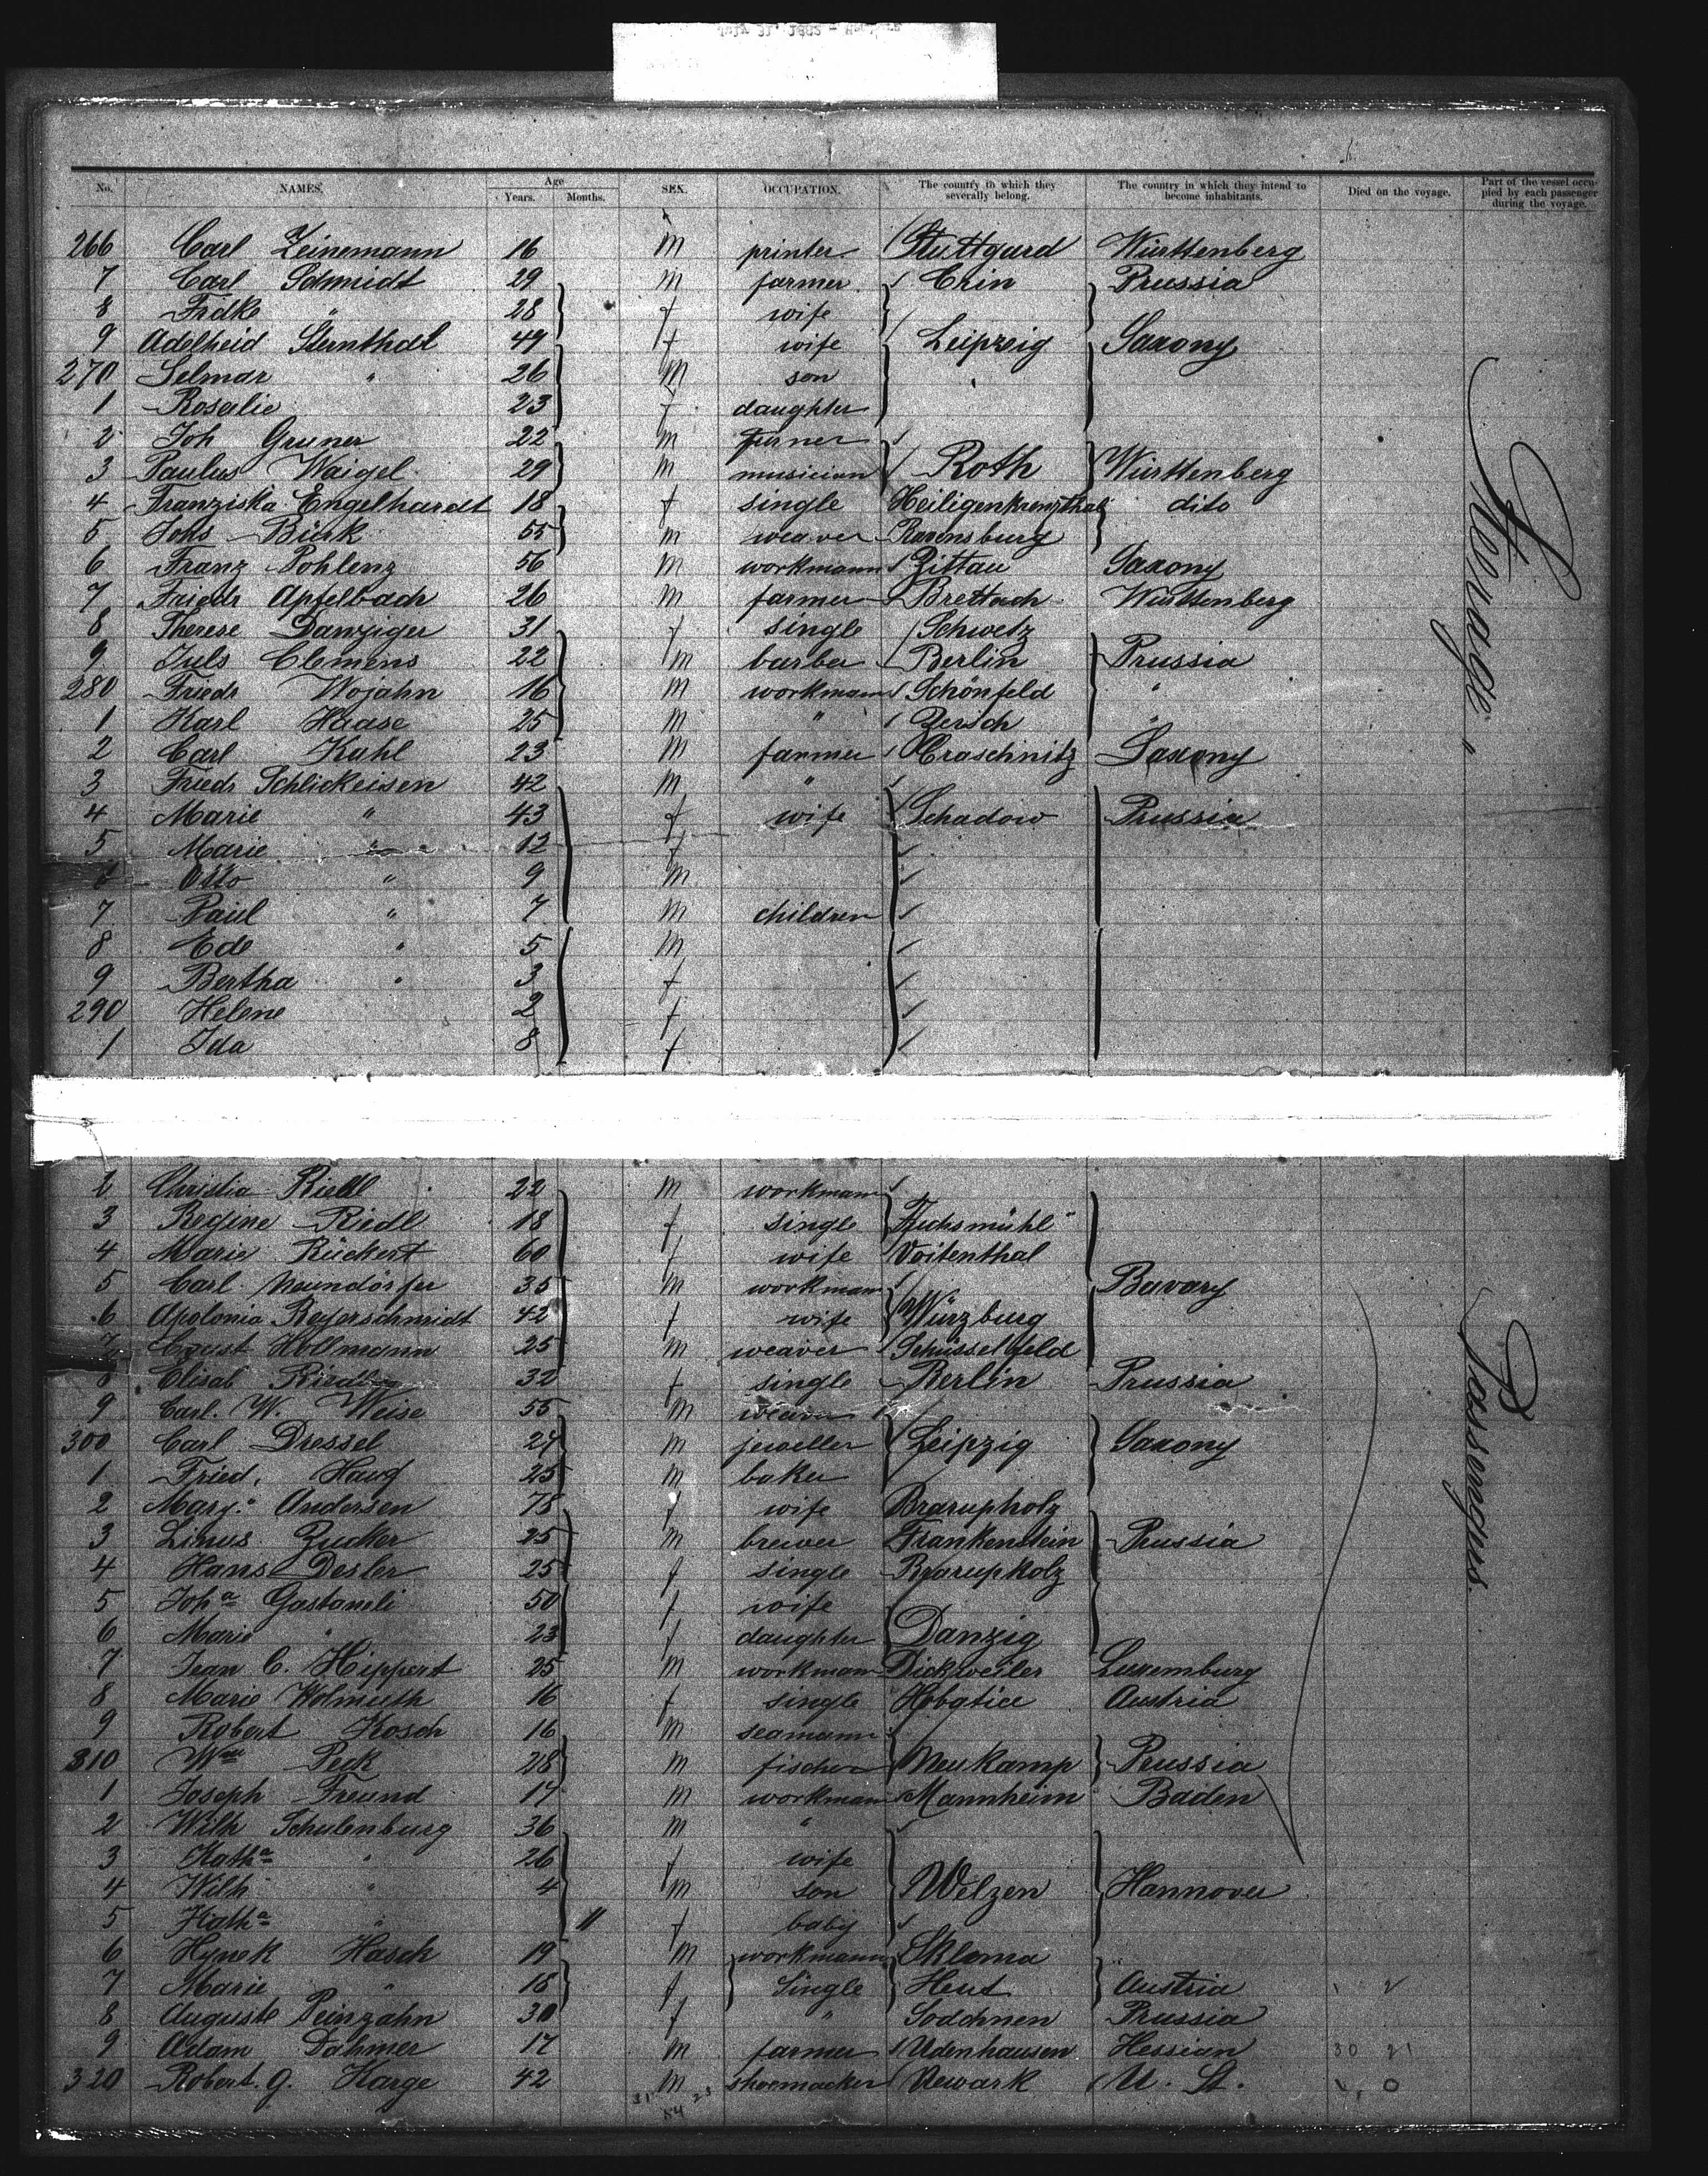 No. NAMES. Age Years. Months. SEX. OCCUPATION. The country to which they severally belong. The country in which they intend to become inhabitants. Died on the voyage. Part of the vessel occupied by each passenger during the voyage.
266 Carl Zeinemann 16 m printer Stuttgard Württenberg
7 Carl Schmidt 29 m farmer Exin Prussia
8 Fridke " 28 f wife
9 Adelheid Sternthal 49 f wife Leipzig Saxony
270 Selmar " 26 m son
1 Rosalie 23 f daughter
2 Joh Gruner 22 m turner
3 Paulus Waigel 29 m musician Roth Württenberg
4 Franziska Engelhardt 18 f single Heiligenkreuzthal dito
5 Johs Bürk 55 m weaver Ravensburg
6 Franz Pohlenz 56 m workmann Zittau Saxony
7 Friedr Apfelbach 26 m farmer Brettach Württenberg
8 Therese Danziger 31 f single Schwetz
9 Juls Clemens 22 m barber Berlin Prussia
280 Friedr Wojahn 16 m workmann Schönfeld "
1 Karl Haase 25 m " Zerich "
2 Carl Kahl 23 m farmer Craschnitz Saxony
3 Friedr Schlickeisen 42 m "
4 Marie " 43 f wife Schadow Prussia
5 Marie " 12 f
6 Otto " 9 m
7 Paul " 7 m children
8 Ede " 5 m
9 Bertha " 3 f
290 Helene 2 f
1 Ida 8 f
Steerage
2 Christia Riedl 22 m workmann
3 Regine Riedl 18 f single Fuchsmühl
4 Marie Rückert 60 f wife Voitenthal
5 Carl Neundörfer 35 m workmann Bavary
6 Apolonia Beyerschmidt 42 f wife Würzburg
7 Hollmann 25 m weaver Schüsselfeld
8 Elisab Riedl 32 f single Berlin Prussia
9 Carl. W. Weise 55 m weaver
300 Carl Dressel 24 m jeweller Leipzig Saxony
1 Fried. Haug 25 m baker
2 Marg. Andersen 78 f wife Brarupholz
3 Linus Zucker 25 m brewer Frankenstein Prussia
4 Hans Desler 25 f single Brarupholz
5 Joha Gastaneli 50 f wife
6 Marie " 23 f daughter Danzig
7 Jean C. Hippert 25 m workmann Dickweiler Luxemburg
8 Marie Wolmuth 16 f single Hobatice Austria
9 Robert Kosch 16 m seamann
310 Wm Peek 28 m fischer Neukamp Prussia
1 Joseph Freund 17 m workmann Mannheim Baden
2 Wilh Schulenburg 36 m "
3 Katha " 26 f wife
4 Wilh " 4 m son Welzen Hannover
5 Katha " 11 f baby
6 Hynek Hasek 19 m workmann Sklama
7 Marie " 18 f Single Heut Austria
8 Auguste Peinzahn 30 f " Sodehnen Prussia
9 Adam Dahmer 17 m farmer Udenhausen Hessian
320 Robert. G. Harge 42 m shoemacker Newark U. St.
Passengers.